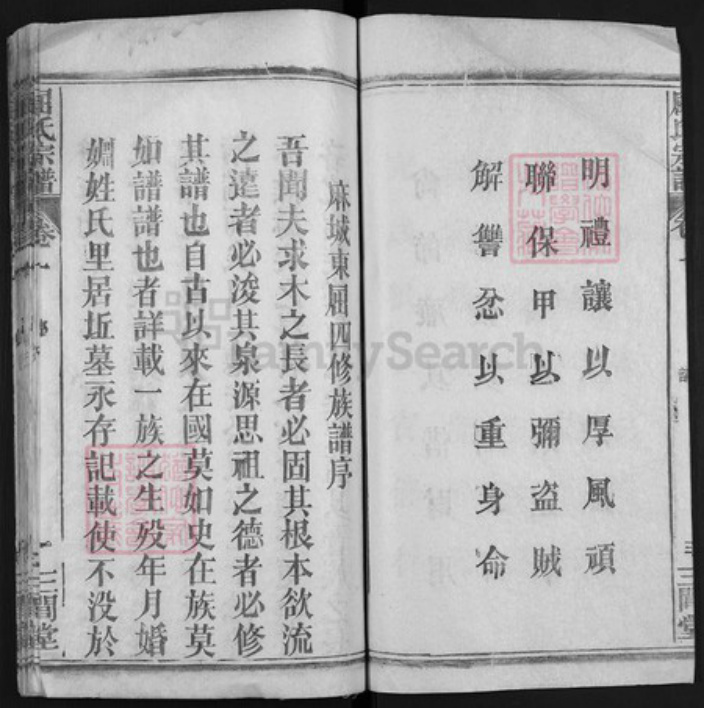 明禮讓以厚風頑
聯保甲以彌盜賊
解讐忿以重身命
麻城東屈四修族譜序
吾聞夫求木之長者必固其根本欲流
之遠者必浚其泉源思祖之德者必修
其譜也自古以來在國莫如史在族莫
如譜譜也者詳載一族之生殁年月婚
姻姓氏里居坵墓永存記載使不没於
屈氏宗譜
卷一
三閭堂
FamilySearch